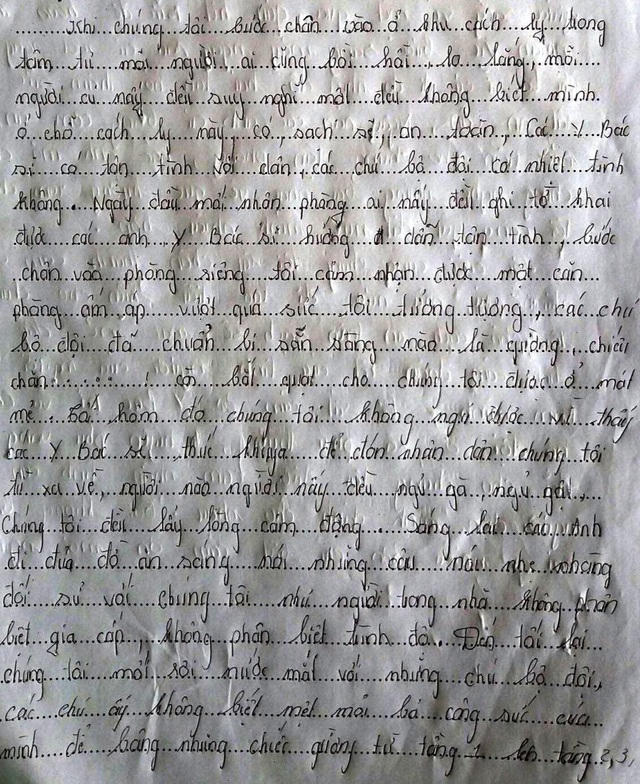 .........Khi chúng tôi bước chân vào ở khu cách ly trong
tâm tư mỗi người, ai cũng bồi hồi, lo lắng, mỗi
người cứ nấy đều suy nghĩ một đều không biết mình
ở chỗ cách ly này có, sạch sẽ, an toàn, Các Y Bác
sĩ có tận tình với dân, các chú bộ đội có nhiệt tình
không... Ngày đầu mới nhận phòng ai nấy đều ghi tờ khai
được các anh Y Bác sĩ hướng dẫn tận tình, bước
chân vào phòng riêng tôi cảm nhận được một căn
phòng ấm áp vượt quá sức tôi tưởng tượng, các chú
bộ đội đã chuẩn bị sẵn sàng nào là giường, chiếu
chăn..., còn bắt quạt cho chúng tôi được ở mát
mẻ. Tối hôm đó chúng tôi không ngủ được vì thấy
các Y Bác sĩ thức khuya để đón nhân dân chúng tôi
từ xa về, người nào người nấy đều ngủ gà, ngủ gật,...
Chúng tôi đều lấy lòng cảm động. Sáng lại các Anh
đi đưa đồ ăn sáng nói những câu nhẹ nhàng
đối sử với chúng tôi như người trong nhà không phân
biệt gia cấp, không phân biệt trình độ. Đến tối lại
chúng tôi mới rơi nước mắt với những chú bộ đội,
các chú ấy không biết mệt mỏi bỏ công sức của
mình để bâng những chiếc giường từ tầng 1 lên tầng 2, 3,